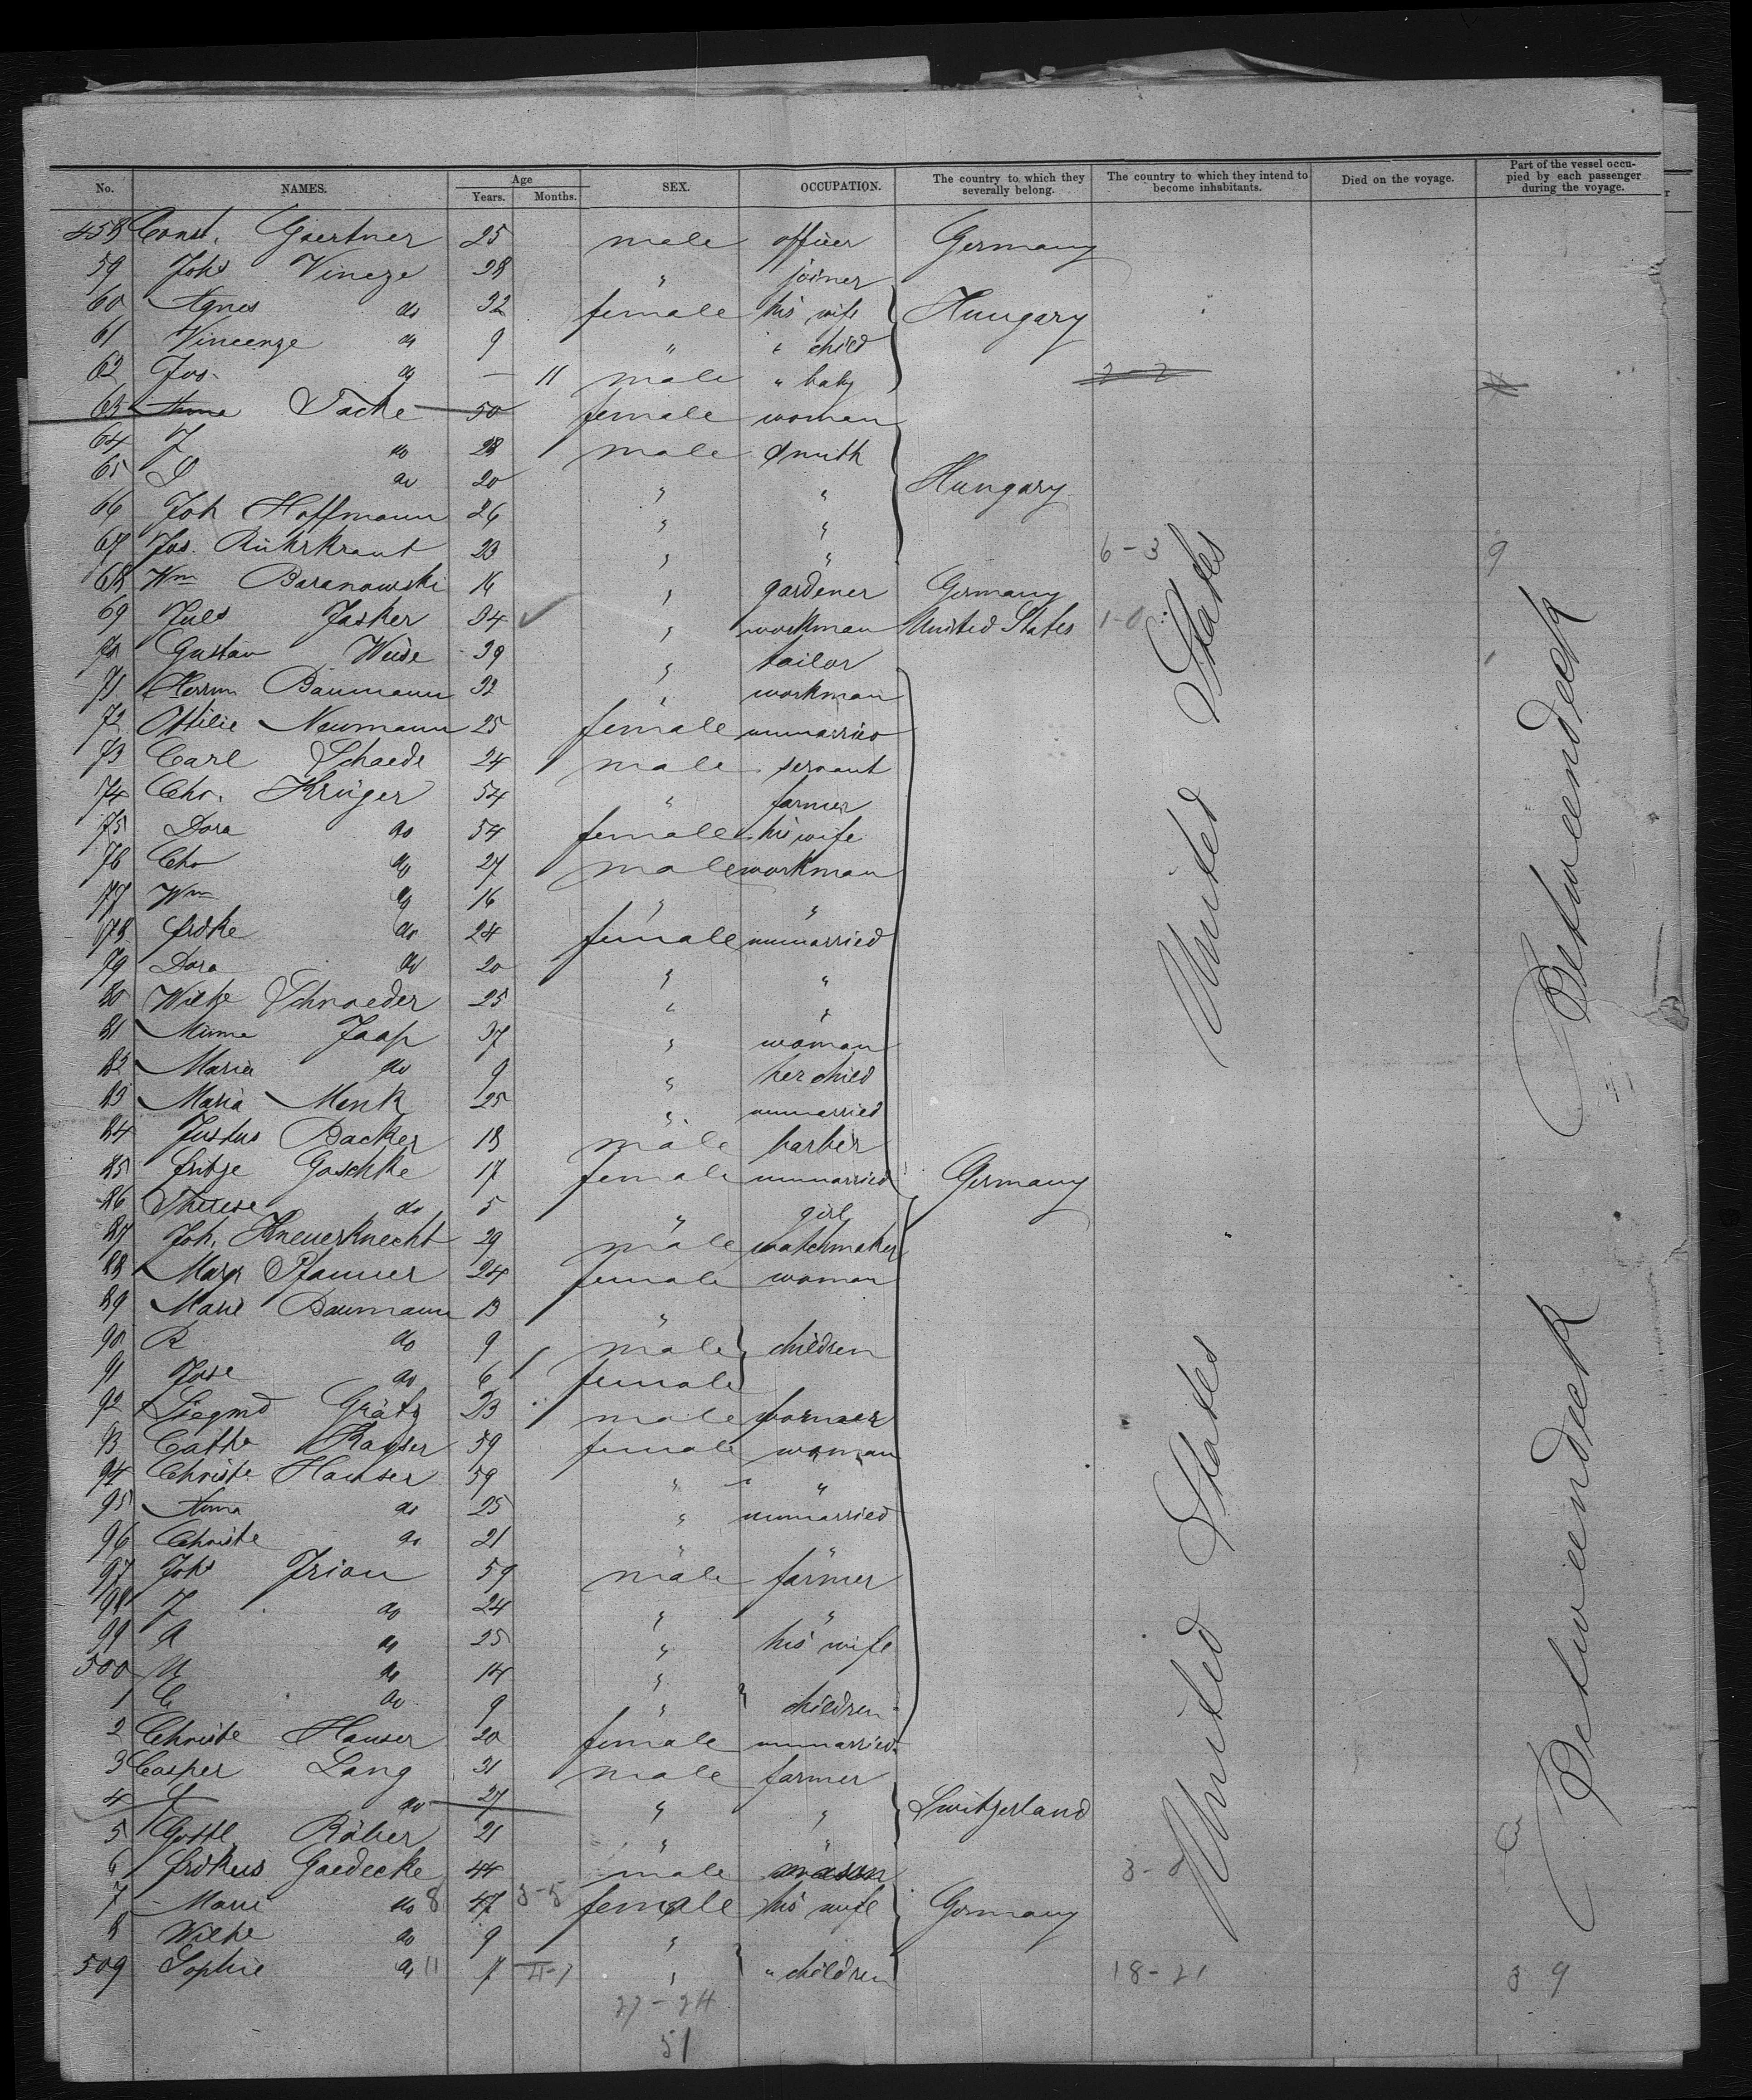 No. NAMES. Age Years. Months. SEX. OCCUPATION. The country to which they severally belong. The country to which they intend to become inhabitants. Died on the voyage. Part of the vessel occupied by each passenger during the voyage.
458 Const. Goertner 25 male officer Germany
59 Johs Vincze 28 " joiner
60 Agnes do 32 female his wife Hungary
61 Vincenze do 9 " " child
62 Jos. do — 11 male " baby 2-2
63 Anna Tacke 50 female woman
64 J do 28 male smith
65 do 20 " " Hungary
66 Joh Hoffmann 26 " "
67 Jos. Rührkraut 23 " " 6-3 9
68 Wm Baranowski 16 " gardener Germany
69 Juls Jasker 34 " workman United States 1-0
70 Gustav Weise 39 " tailor
71 Herrm Baumann 32 " workman
72 Ottilie Naumann 25 female unmarried
73 Carl Schaede 24 male servant
74 Chr. Krüger 54 " farmer
75 Dora do 54 female his wife
76 Chr do 27 male workman
77 Wm do 16 " "
78 Frdke do 24 female unmarried
79 Dora do 20 " "
80 Wilhe Schroeder 25 " "
81 Minna Jaap 37 " woman
82 Maria do 9 " her child
83 Maria Menk 25 " unmarried
84 Justus Backer 18 male barber
85 Fritze Goschke 17 female unmarried Germany
86 Therese do 5 " girl
87 Joh. Kneuerknecht 29 male watchmaker
88 Margr Pfanner 24 female woman
89 Marie Baumann 13 "
90 R do 9 male children
91 Jose do 6 female
92 Siegmd Grätz 23 male farmer
93 Cathe Kayser 59 female woman
94 Christe Hauser 59 " "
95 Anna do 25 " unmarried
96 Christe do 21 " "
97 Johs Irion 59 male farmer
98 J do 24 " "
99 A do 25 " his wife
500 do 14 "
1 do 9 " children
2 Christe Hauser 20 female unmarried
3 Casper Lang 31 male farmer
4 do 27 " " Switzerland
5 Gottl. Räber 21 " "
6 Frdkus Gaedecke 44 male mason 3-0
7 Marie do 8 47 3-5 female his wife Germany
8 Wilhe do 9 "
509 Sophie do 11 7 " " children 18-21 3 9
27-24
51
United States
United States
Betweendeck
Betweendeck